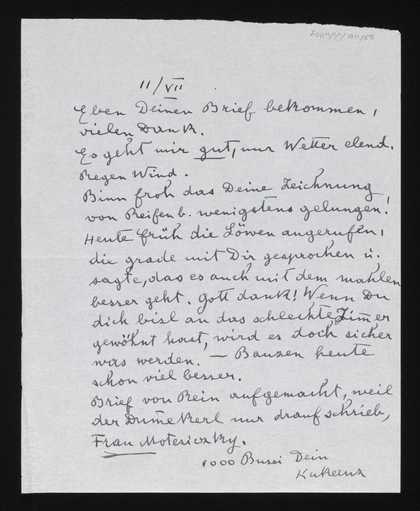 11/VII
Eben Deinen Brief bekommen,
vielen Dank.
Es geht mir gut, nur Wetter elend.
Regen Wind.
Binn froh das Deine Zeichnung
von Reifenb. wenigstens gelungen!
Heute früh die Löwen angerufen,
die grade mit Dir gesprochen u.
sagte, das es auch mit dem mahlen
besser geht. Gott dank! Wenn Du
dich bisl an das schlechte Zimer
gewöhnt haut, wird es doch sicher
was werden. — Bauzen heute
schon viel besser.
Brief von Rein aufgemacht, weil
der Dume Kerl nur drauf schrieb,
Frau Motesiczky.
1000 Busei Dein